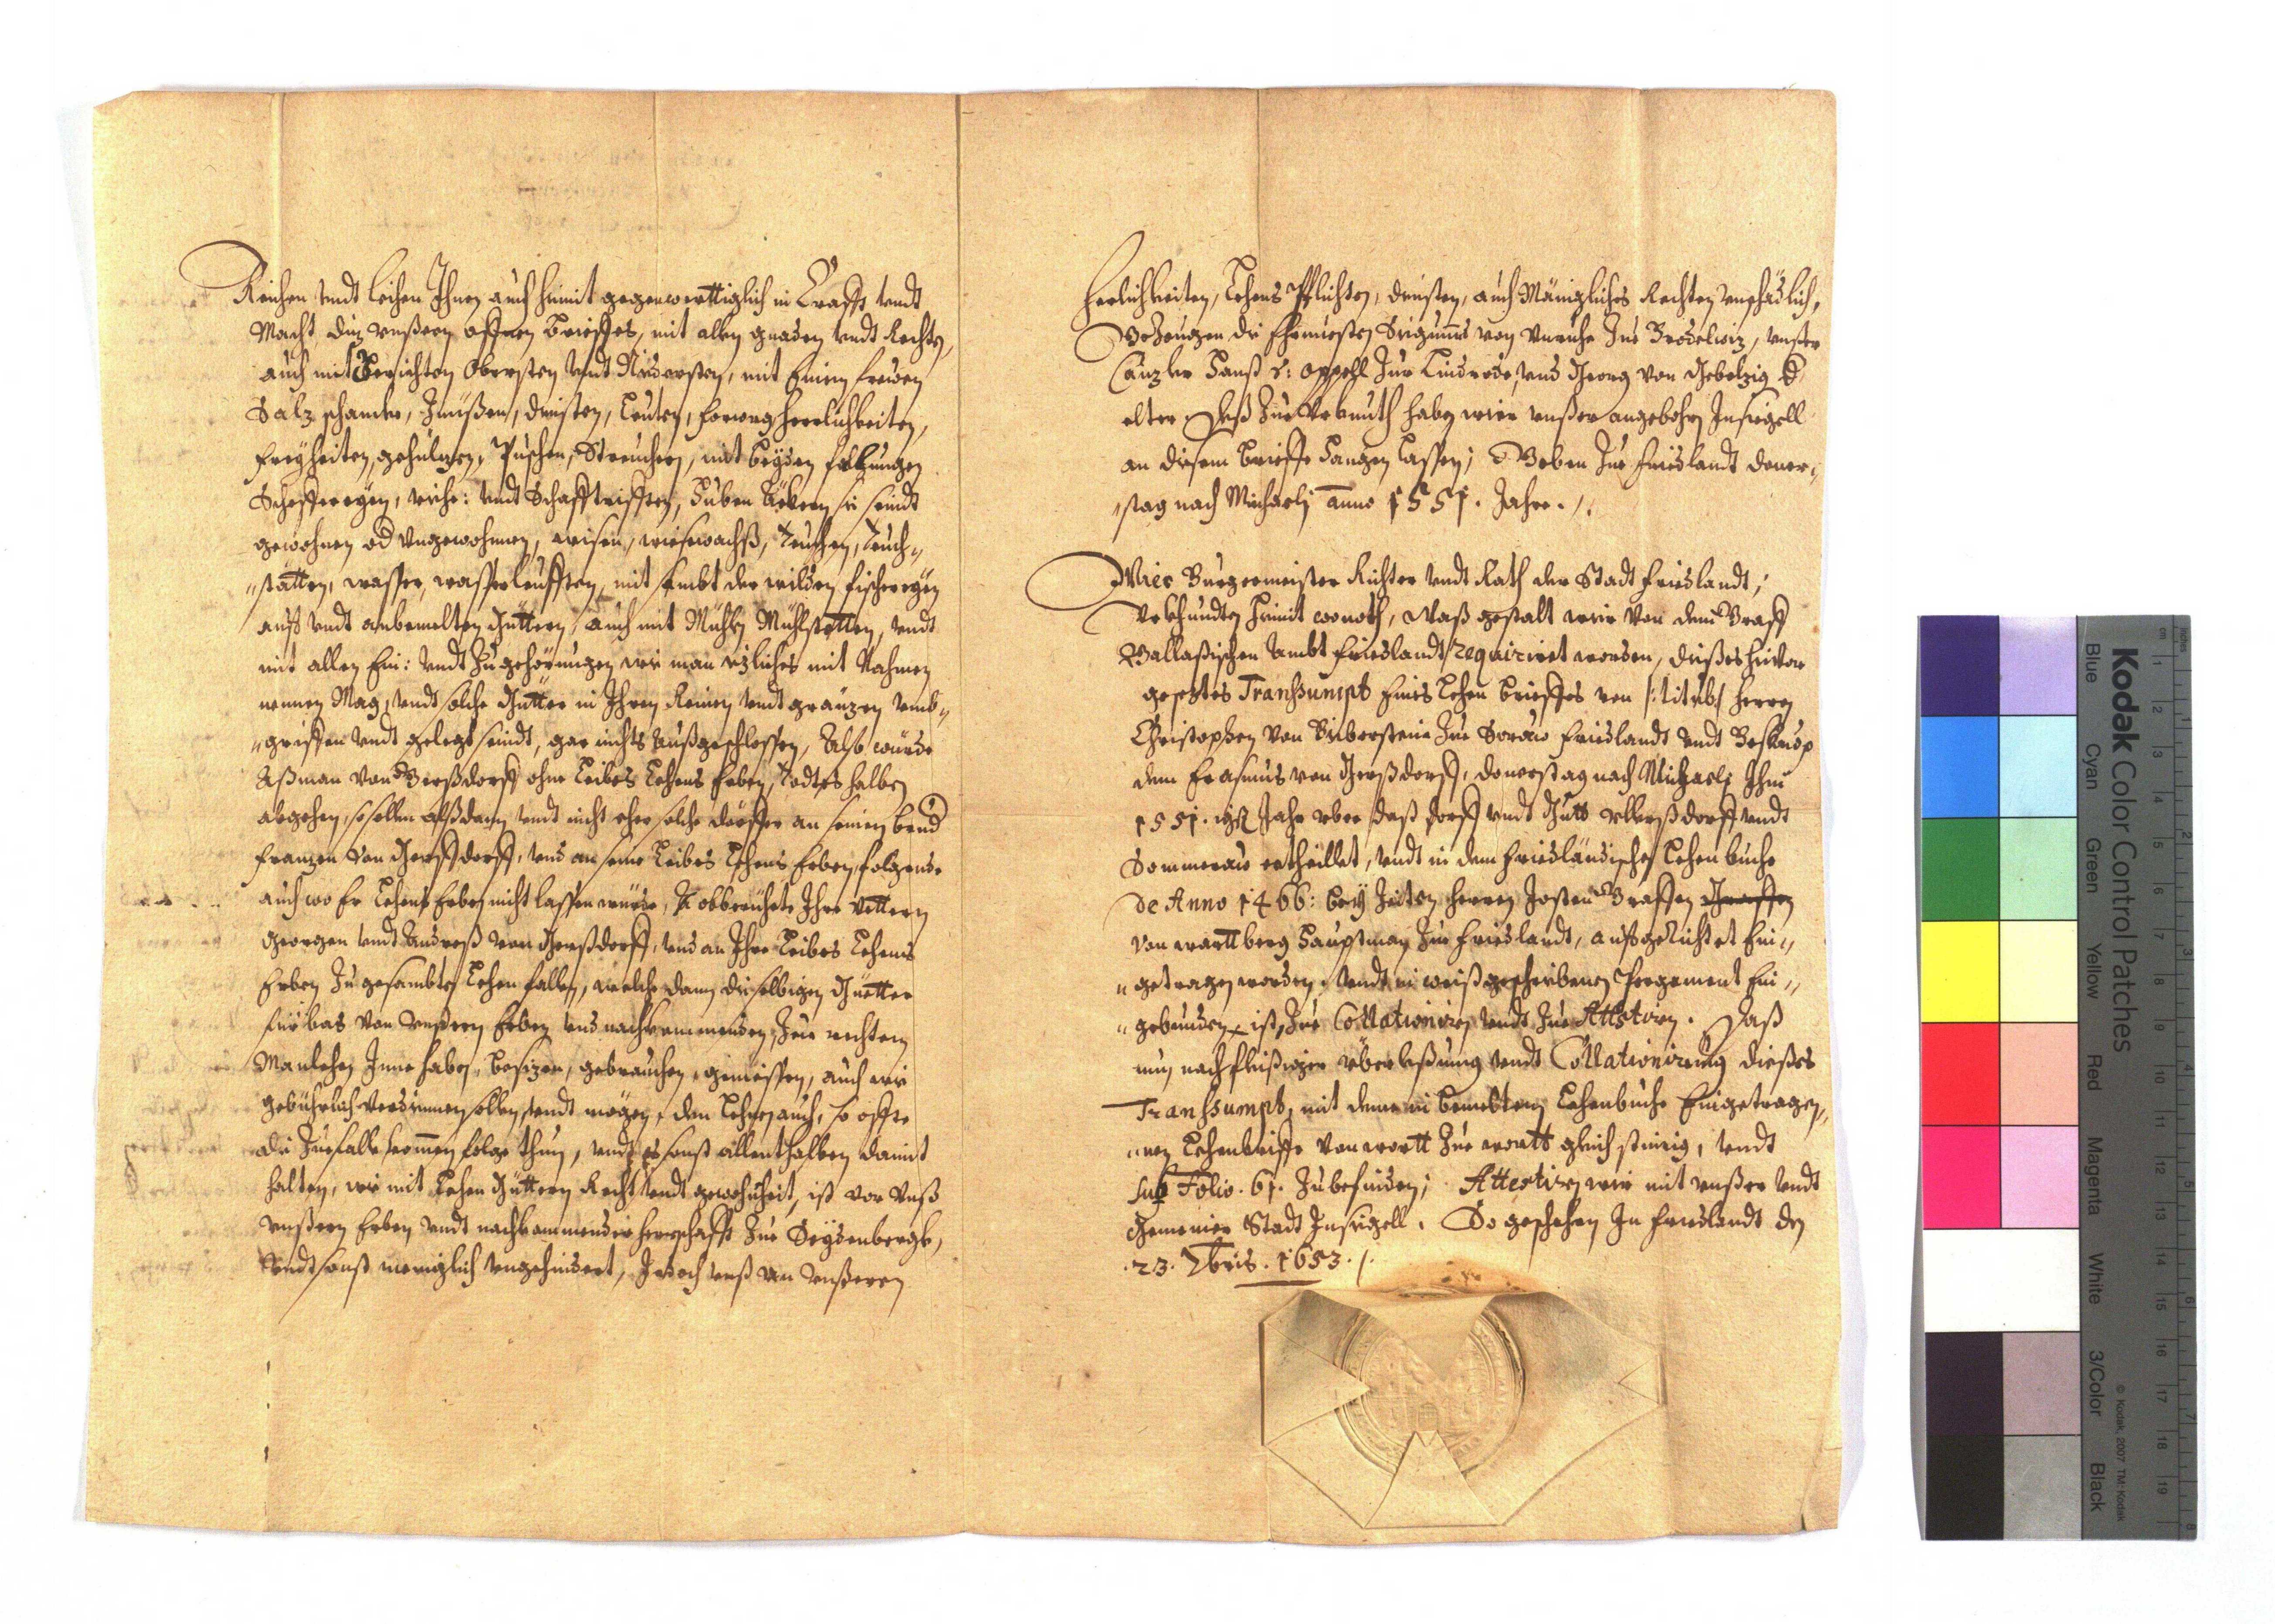 Reichen vndt leihen Ihnen auch hiemit gegenwerttiglich in Crafft vndt
Macht diz vnßern offnen Brieffes, mit allen gnaden vndt Rechten,
auch mit Gerichten Obersten vndt Nidersten, mit Einem freyen
Salz schancke, Zinnßen, Diensten, Leuten, herrlichkeiten,
freyheiten, gehülzen, Püschen, Streuchern, mit beyden
Schefferegen, viehe: vndt Schafftrifften, Huben Äckern sie seindt
gewohnen od vngewohnnen, wiesen, wiesewachß, Teuchen, Teuch„
„stätten, wasser, wasserleufften, mit sambt der wilden fischereyen
auff vndt anbemelten Güttern, auch mit Mühlen Mühlstetten, vndt
mit allen Ein: vndt Zugehörungen wie man izliches mit Nahmen
nennen Mag, vndt solche Gütter in Ihren Reinen vndt gränzen vmb„
„griffen vndt gelegt seindt, gar nichts Außgeschlossen, Alß würde
Aßman von Gerßdorff ohne Leibes Lehens Erben, Todtes halben
abgehen, so sollen alßdann vndt nicht eher solche dörffer an seinen brud
franzen von Gerßdorff, vnd an seine Leibes Lehens Erben, folgende
auch wo Er Lehens Erben nicht lassen würde, Ihre Vettern
Georgen vndt Andreß von Gerßdorff, vnd an Ihre Leibes Lehens
Erben Zu gesambten Lehen fallen, welche dann dieselbigen Güetter
fürbas von vnßern Erben vnd nachkommenden, Zue rechten
Manlehen Inne haben, besizen, gebrauchen, geniessen, auch wie
gebührlich verdienen sollen, vndt mögen, den Lehen auch, so offte
die Zue falle kommen folge thun, vndt es sonst allenthalben damit
halten, wie mit Lehen Güttern Recht vndt gewohnheit, ist vor vnß
vnßern Erben vndt nachkommender herrschafft Zue Seydenbergk,
vndt sonst meniglich vngehindert, Jedoch vnß an vnßeren
herlichkeiten, Lehens Pflichten, diensten, auch Mäniglichs Rechten vnschädlich,
Gezeugen die Ehrnuesten von Vnruhe Zue vnser
Canzler Hanß v: Oppell Zue Linderode, vnd Georg von Gebelzig D
elter. Deß Zue Vrkunth haben wier vnßer angebohren Insiegell
an diesem Brieffe Hangen lassen; Geben Zue Friedlandt doner„
„stag nach Michaelj anno 1551. Jahre./.
Wier Burgermeister Richter vndt Rath der Stadt Friedlandt,
Vrkhundten hiemit wonoth, Waß gestalt wier von dem Graff
Gallaßischen Ambt Friedlandt requiriret worden, dießes hievor
gesetztes Transsumpt Eines Lehen brieffes von /:titul:/ Herren
Christophen von Biberstein Zue Soraw Friedlandt vndt Beßkow
dem Erasmus von Gerßdorff, donerstag nach Michaelj Ihm
1551. ist Jahr vber daß dorff vndt Gutt Vllerßdorff vndt
Sommeraw ertheillet, vndt in dem Friedländischen Lehen buche
de Anno 1466: bey Zeiten Herren Graffen Graffen
von Hauptman Zue Friedlandt, auffgerichtet Ein„
„getragen worden, vndt in weiß geschriebenem Pergament Ein„
„gebunden ist, Zue Collationiren vndt Zue Attestiren. Daß
nun nach fleißiger vberleßung vndt Collationirung dießes
Transsumpt, mit deme in bemelten Lehenbuche Eingetragen„
„nen Lehenbriffe von wortt Zue wortt gleich stimig, vndt
sub Folio. 61. Zubefinden; Attestiren wir mit vnßer vndt
Gemeiner Stadt Insiegell. So geschehen In Friedlandt den
.23. Xbris. 1653./.
Kodak Color Control Patches
Blue Cyan Green Yellow Red Magenta White 3/Color Black
© Kodak, 2007 TM: Kodak